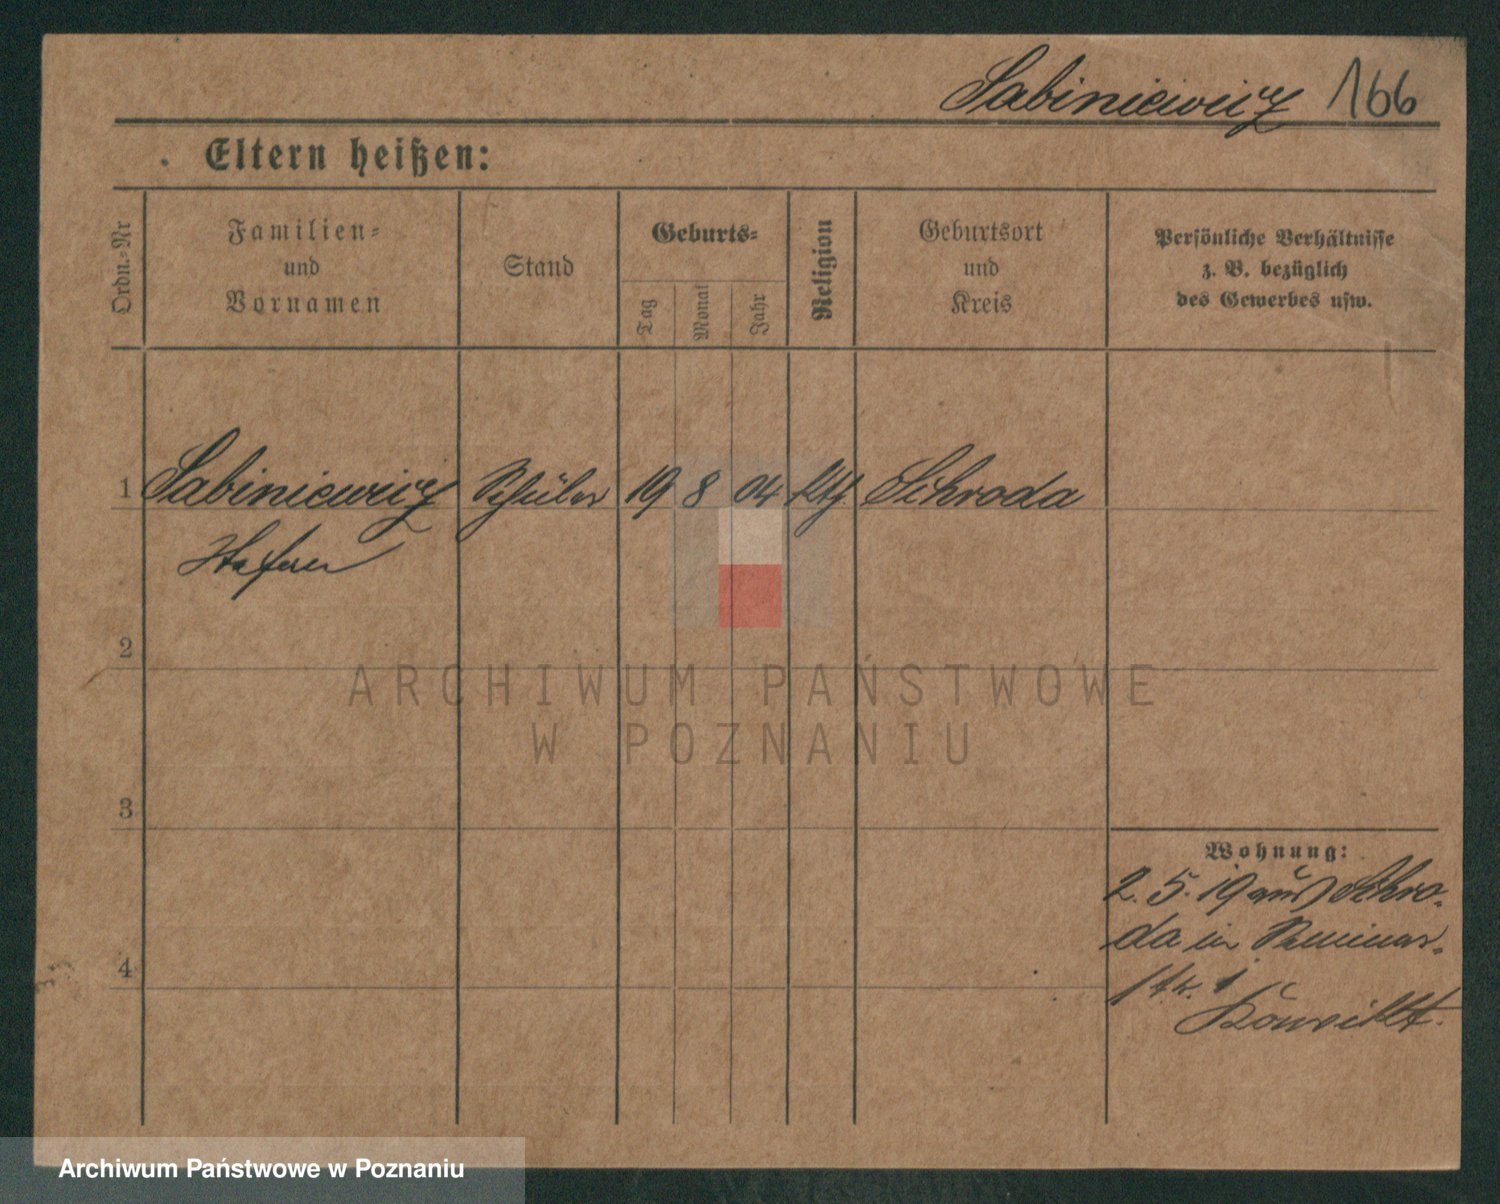 Sabiniewicz 166
Eltern heißen:
Ordn.-Nr
Familien-
und
Vornamen
Stand
Geburts-
Tag
Monat
Jahr
Religion
Geburtsort
und
Kreis
Persönliche Verhältnisse
z. B. bezüglich
des Gewerbes usw.
1 Sabiniewicz Schüler 19 8 04 kth. Schroda
Stefan
2
ARCHIWUM PAŃSTWOWE
W POZNANIU
3
Wohnung:
2. 5. 19 aus Schro-
da in Seminar-
str. 1
4
Archiwum Państwowe w Poznaniu